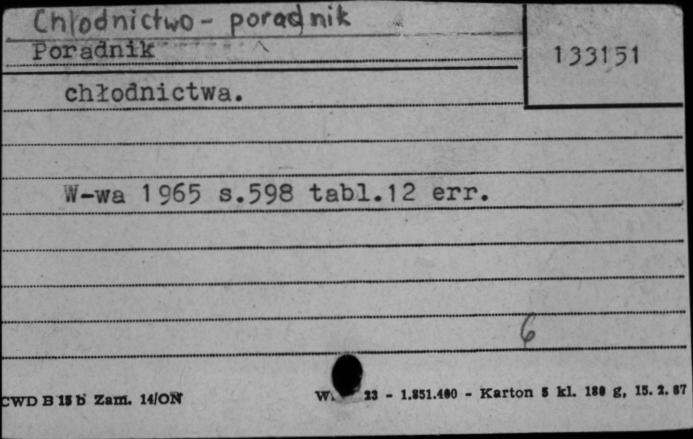 Chłodnictwo - poradnik
Poradnik
133151
chłodnictwa.
W-wa 1965 s.598 tabl.12 err.
6
CWD B 15 b Zam. 14/ON
23 - 1.851.400 - Karton 5 kl. 180 g, 15. 2. 67